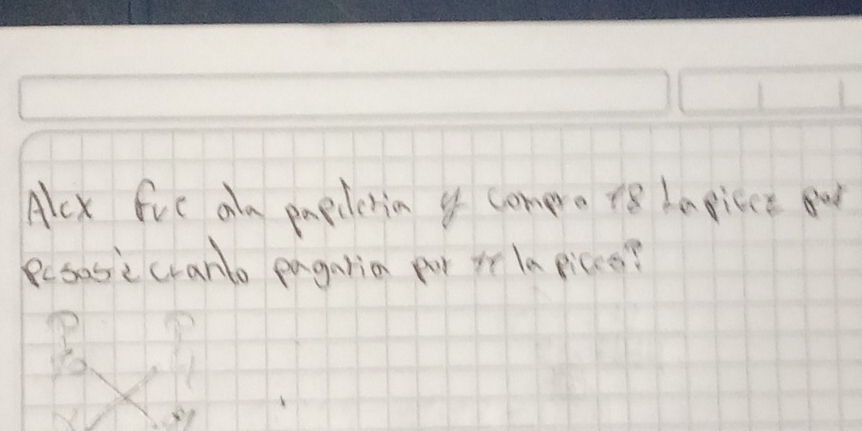 Alex fue ala papeleria y compro 18 Lapices por
pesos ¿ cuanto pagaria por 11 lapices?
P P